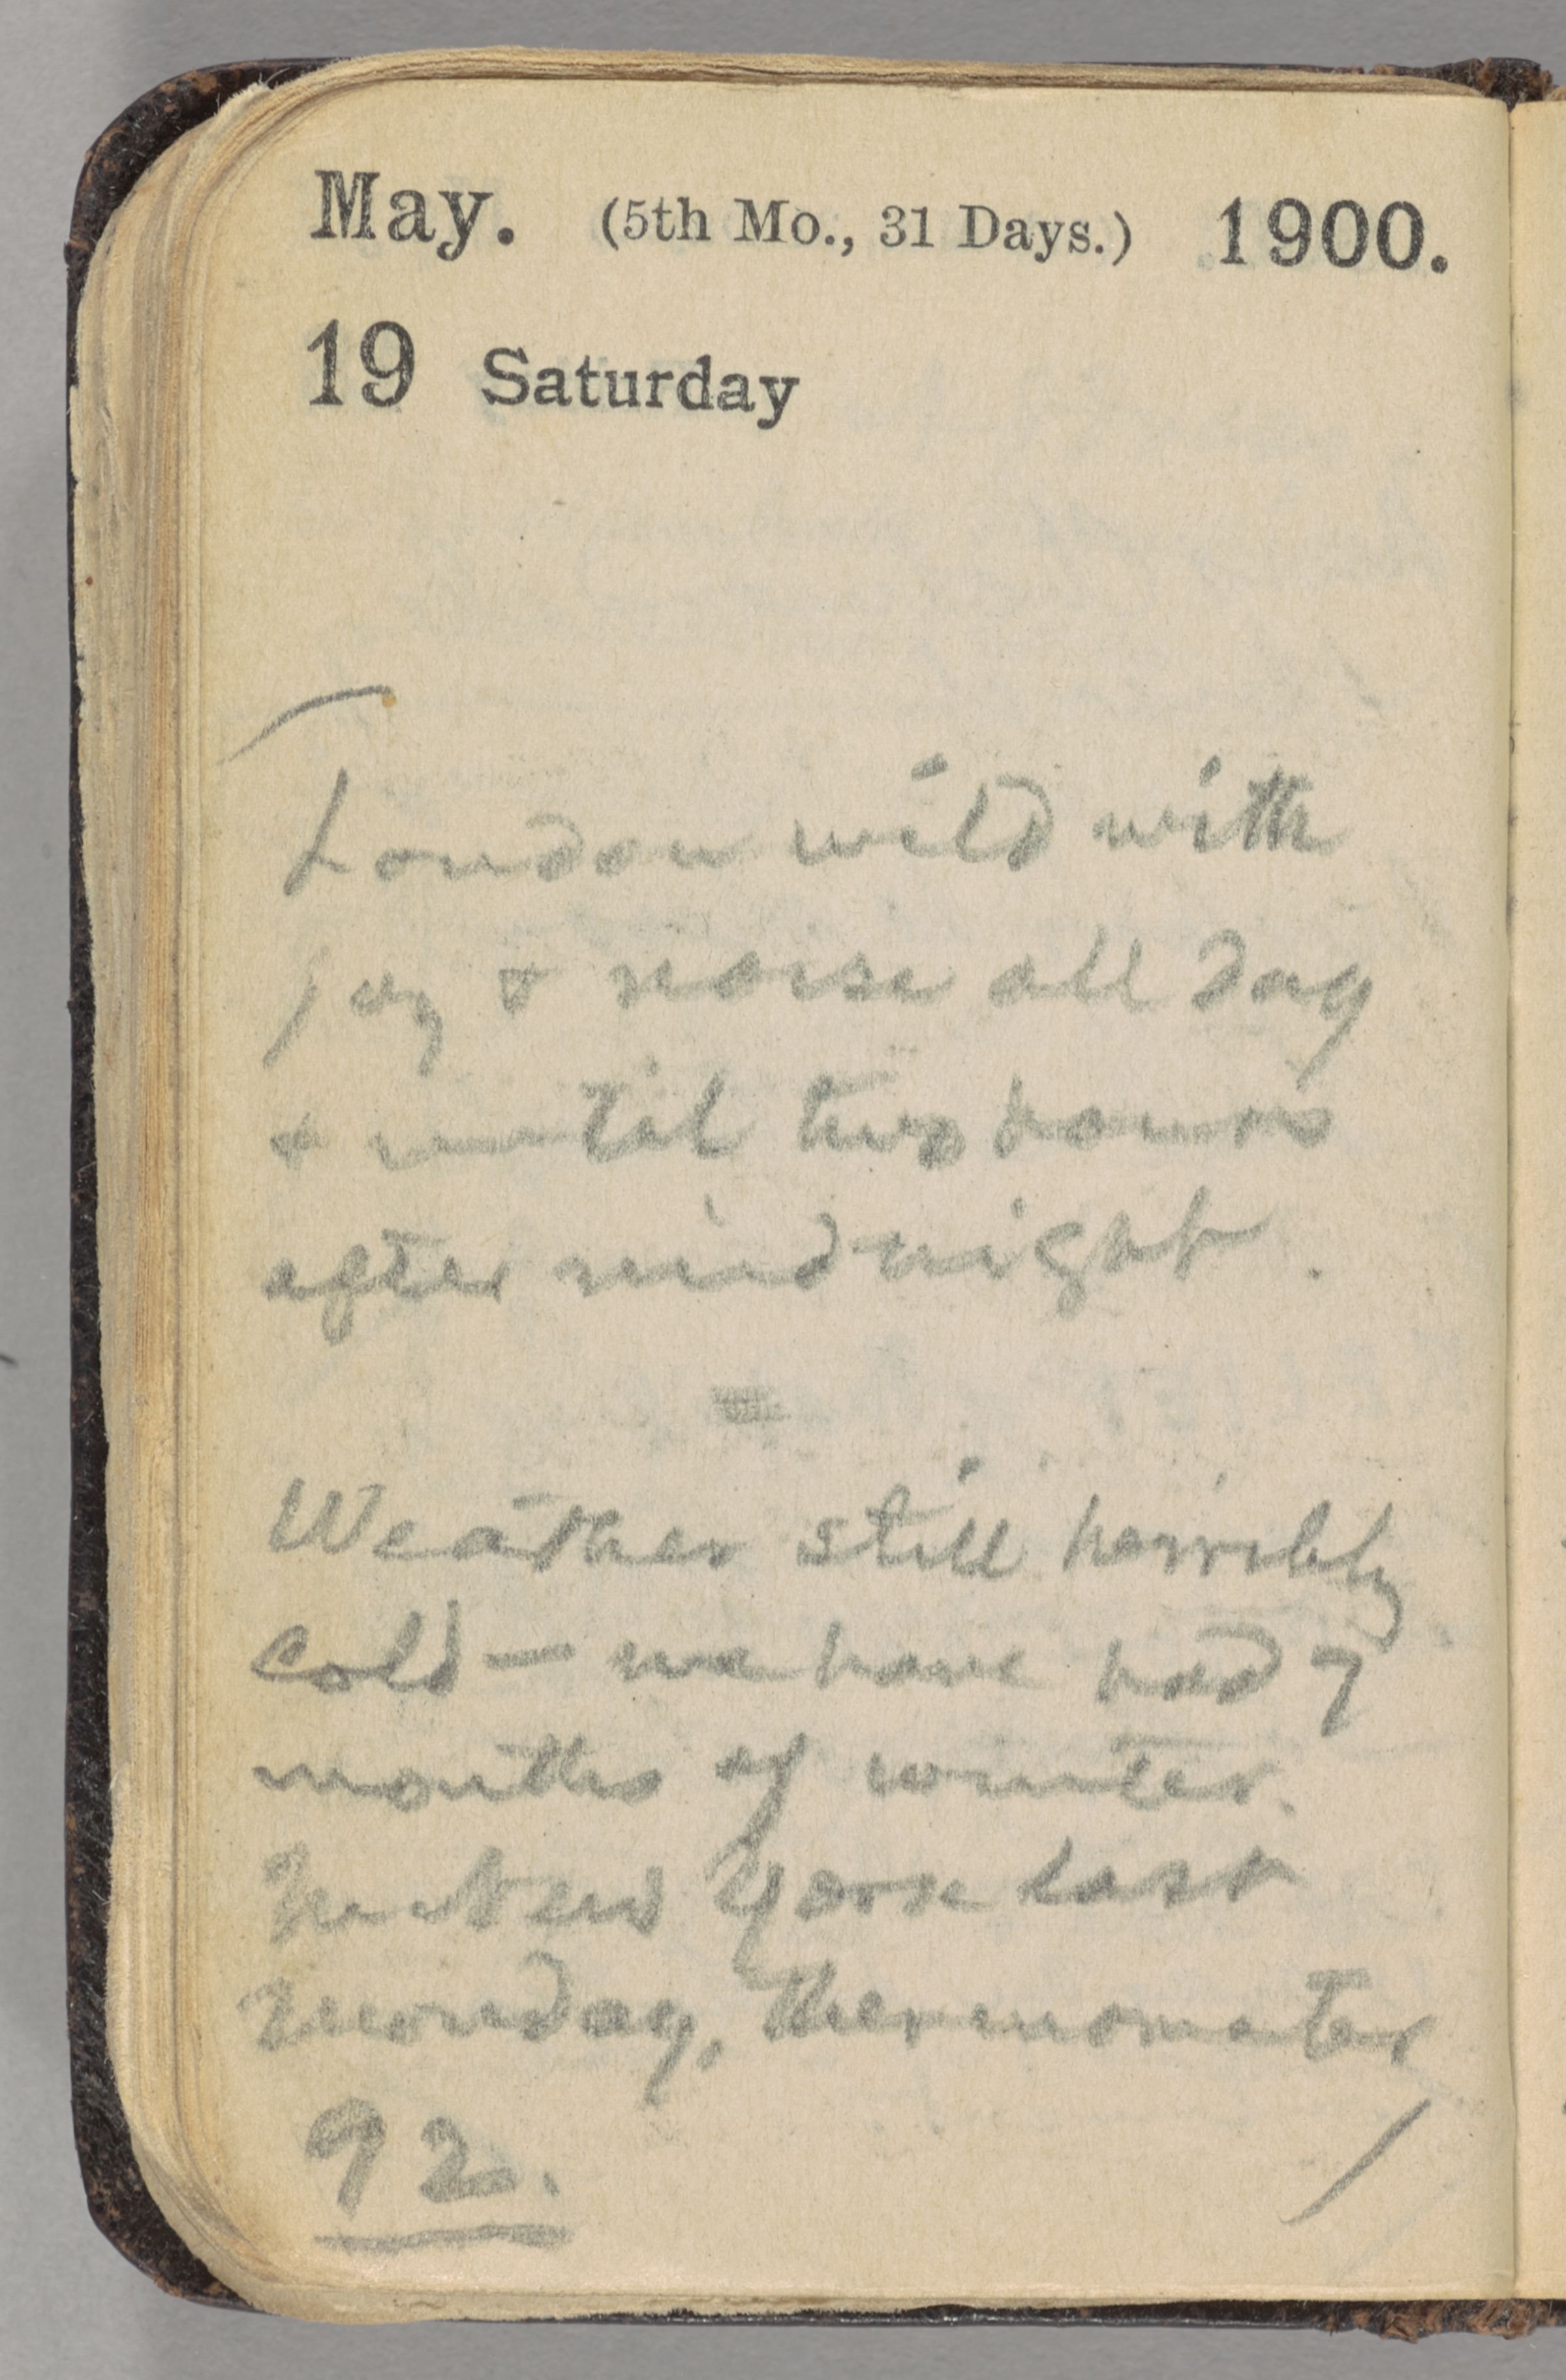 May. (5th Mo., 31 Days.) 1900.
19 Saturday
London wild with
joy & noise all day
& until two hours
after midnight.
Weather still horribly
cold — we have had 7
months of winter.
In New York last
Monday, thermometer
92.